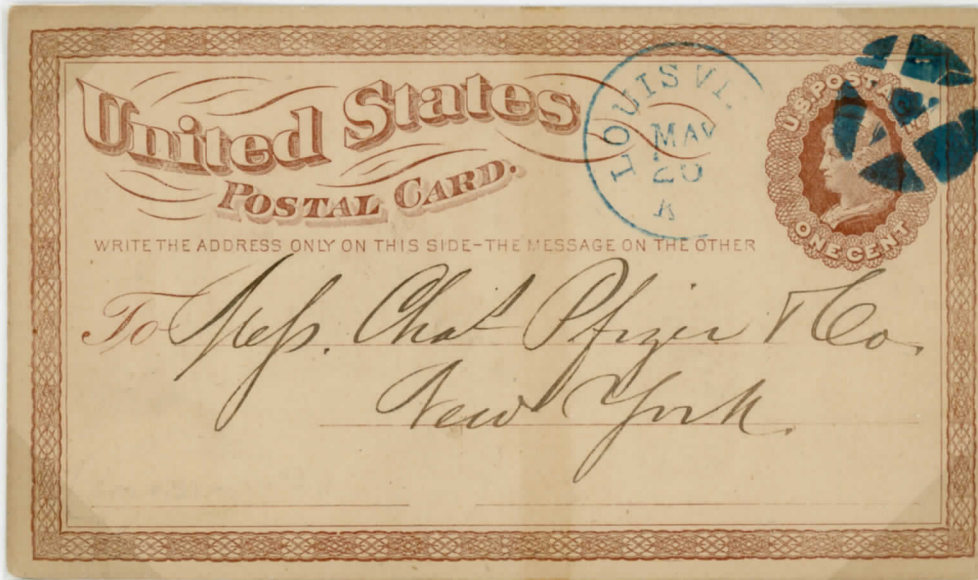 United States
POSTAL CARD.
WRITE THE ADDRESS ONLY ON THIS SIDE-THE MESSAGE ON THE OTHER
LOUISVI
MAY
20
K
U.S. POSTAGE
ONE CENT
To Mess. Chas Pfizer & Co.
New York.